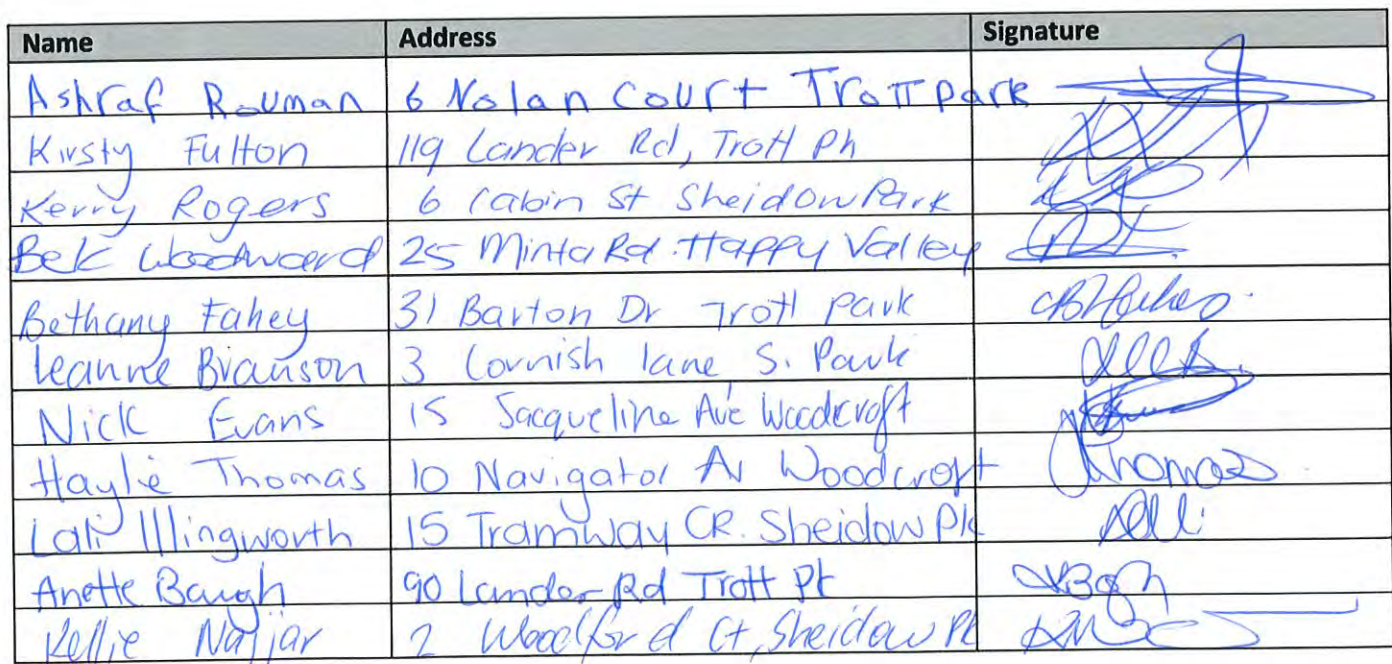 Name Address Signature
Ashraf Rouman 6 Nolan Court Trott park
Kirsty Fulton 119 Lander Rd, Trott Pk
Kerry Rogers 6 Cabin St Sheidow Park
Bek Woodward 25 Minta Rd. Happy Valley
Bethany Fahey 31 Barton Dr Trott park
Leanne Branson 3 Cornish lane S. Park
Nick Evans 15 Jacqueline Ave Woodcroft
Haylie Thomas 10 Navigator Av Woodcroft Thomas
Lali Illingworth 15 Tramway CR. Sheidow Pk
Anette Baugh 90 Lander Rd Trott Pk
Kellie Najjar 2 Woodford Ct, Sheidow Pk